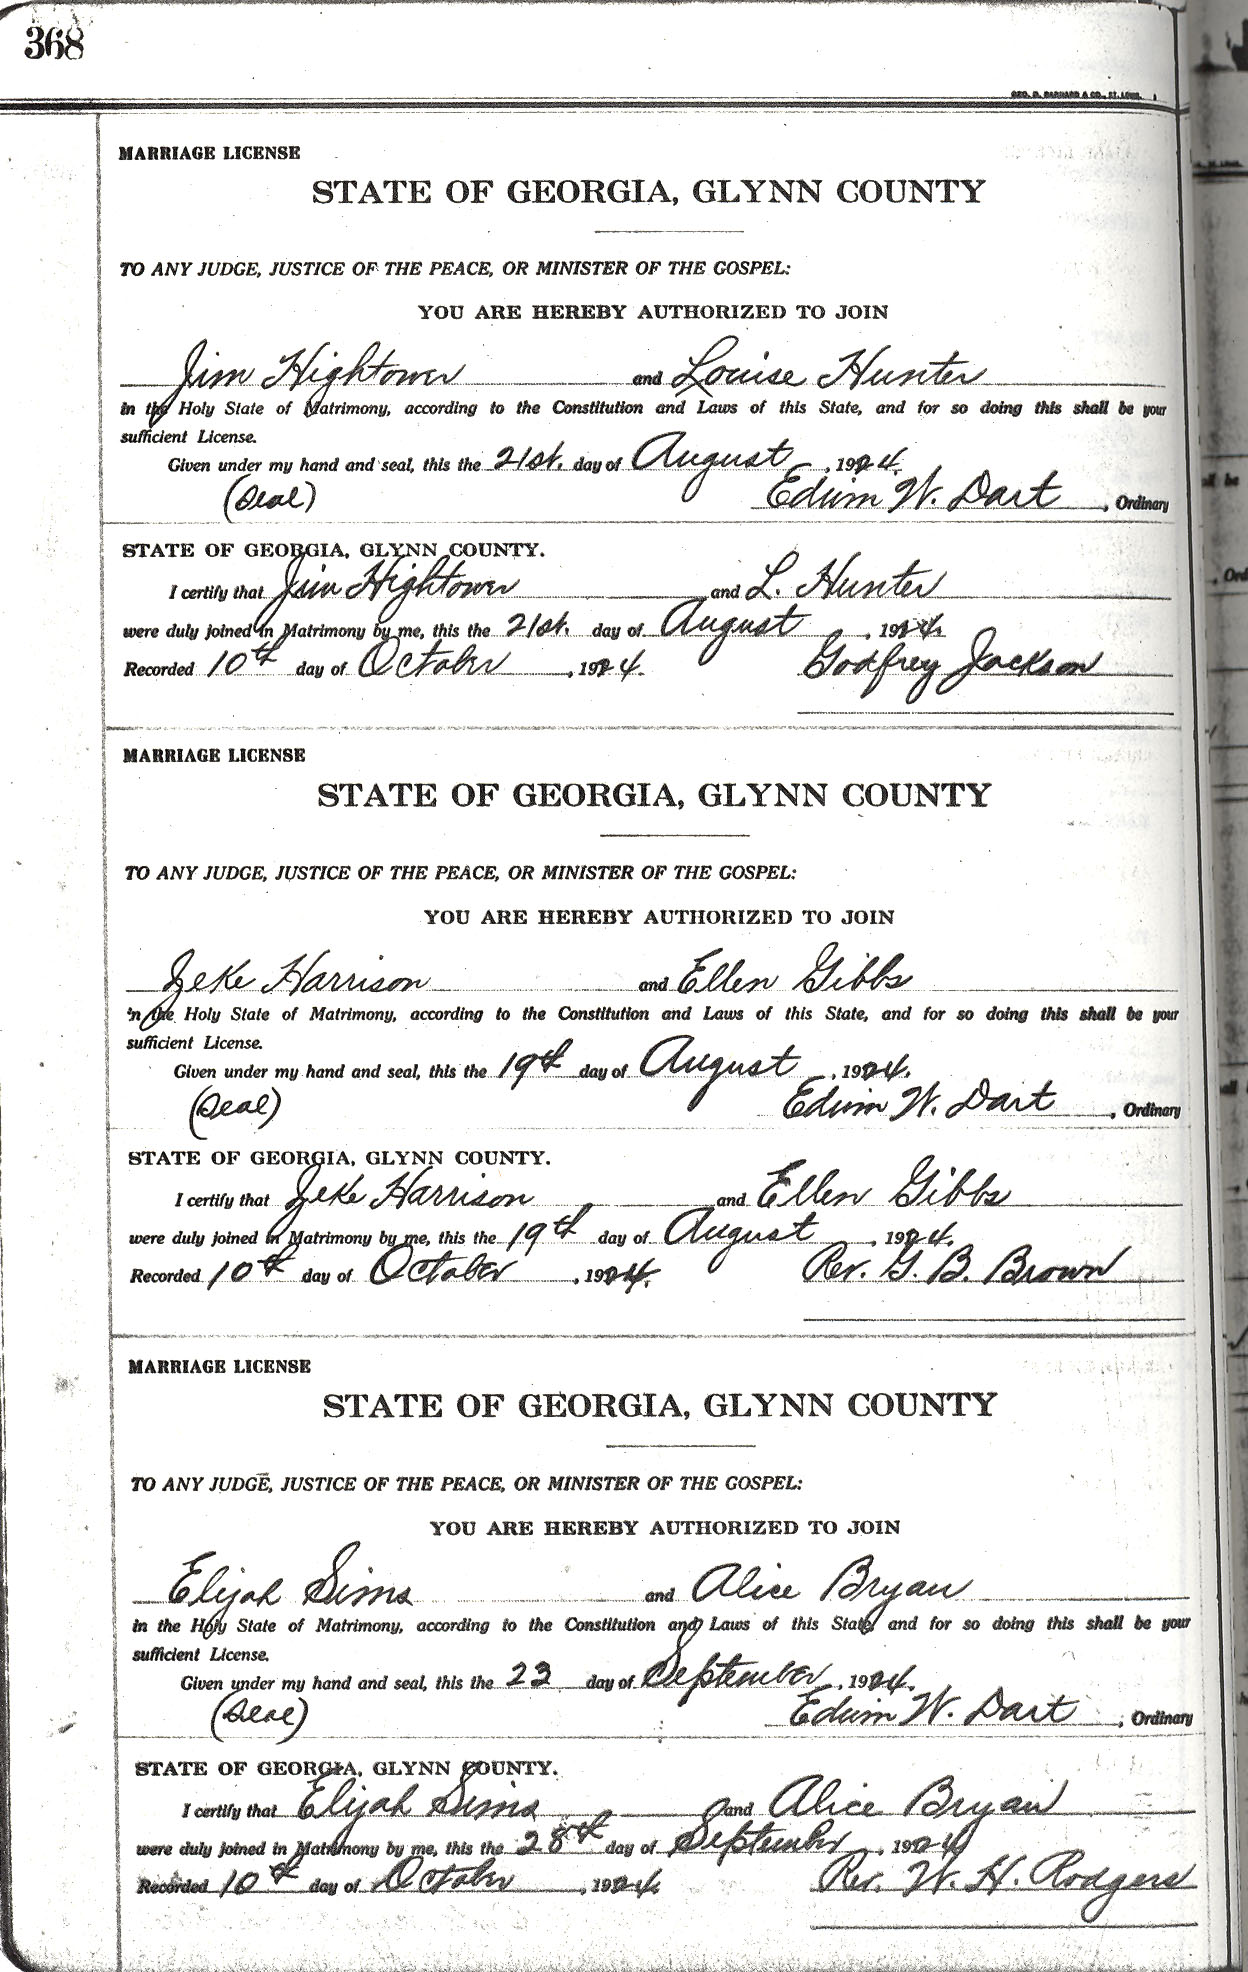 368
GEO. D. BARNARD & CO., ST. LOUIS.
MARRIAGE LICENSE
STATE OF GEORGIA, GLYNN COUNTY
TO ANY JUDGE, JUSTICE OF THE PEACE, OR MINISTER OF THE GOSPEL:
YOU ARE HEREBY AUTHORIZED TO JOIN
Jim Hightower and Louise Hunter
in the Holy State of Matrimony, according to the Constitution and Laws of this State, and for so doing this shall be your
sufficient License.
Given under my hand and seal, this the 21st. day of August, 1924.
(Seal) Edwin W. Dart, Ordinary
STATE OF GEORGIA, GLYNN COUNTY.
I certify that Jim Hightower and L. Hunter
were duly joined in Matrimony by me, this the 21st. day of August, 1924.
Recorded 10th day of October, 1924. Godfrey Jackson
MARRIAGE LICENSE
STATE OF GEORGIA, GLYNN COUNTY
TO ANY JUDGE, JUSTICE OF THE PEACE, OR MINISTER OF THE GOSPEL:
YOU ARE HEREBY AUTHORIZED TO JOIN
Zeke Harrison and Ellen Gibbs
in the Holy State of Matrimony, according to the Constitution and Laws of this State, and for so doing this shall be your
sufficient License.
Given under my hand and seal, this the 19th day of August, 1924.
(Seal) Edwin W. Dart, Ordinary
STATE OF GEORGIA, GLYNN COUNTY.
I certify that Zeke Harrison and Ellen Gibbs
were duly joined in Matrimony by me, this the 19th day of August, 1924.
Recorded 10th day of October, 1924. Rev. G. B. Brown
MARRIAGE LICENSE
STATE OF GEORGIA, GLYNN COUNTY
TO ANY JUDGE, JUSTICE OF THE PEACE, OR MINISTER OF THE GOSPEL:
YOU ARE HEREBY AUTHORIZED TO JOIN
Elijah Sims and Alice Bryan
in the Holy State of Matrimony, according to the Constitution and Laws of this State, and for so doing this shall be your
sufficient License.
Given under my hand and seal, this the 23 day of September, 1924.
(Seal) Edwin W. Dart, Ordinary
STATE OF GEORGIA, GLYNN COUNTY.
I certify that Elijah Sims and Alice Bryan
were duly joined in Matrimony by me, this the 28th day of September, 1924
Recorded 10th day of October, 1924. Rev. W. H. Rodgers